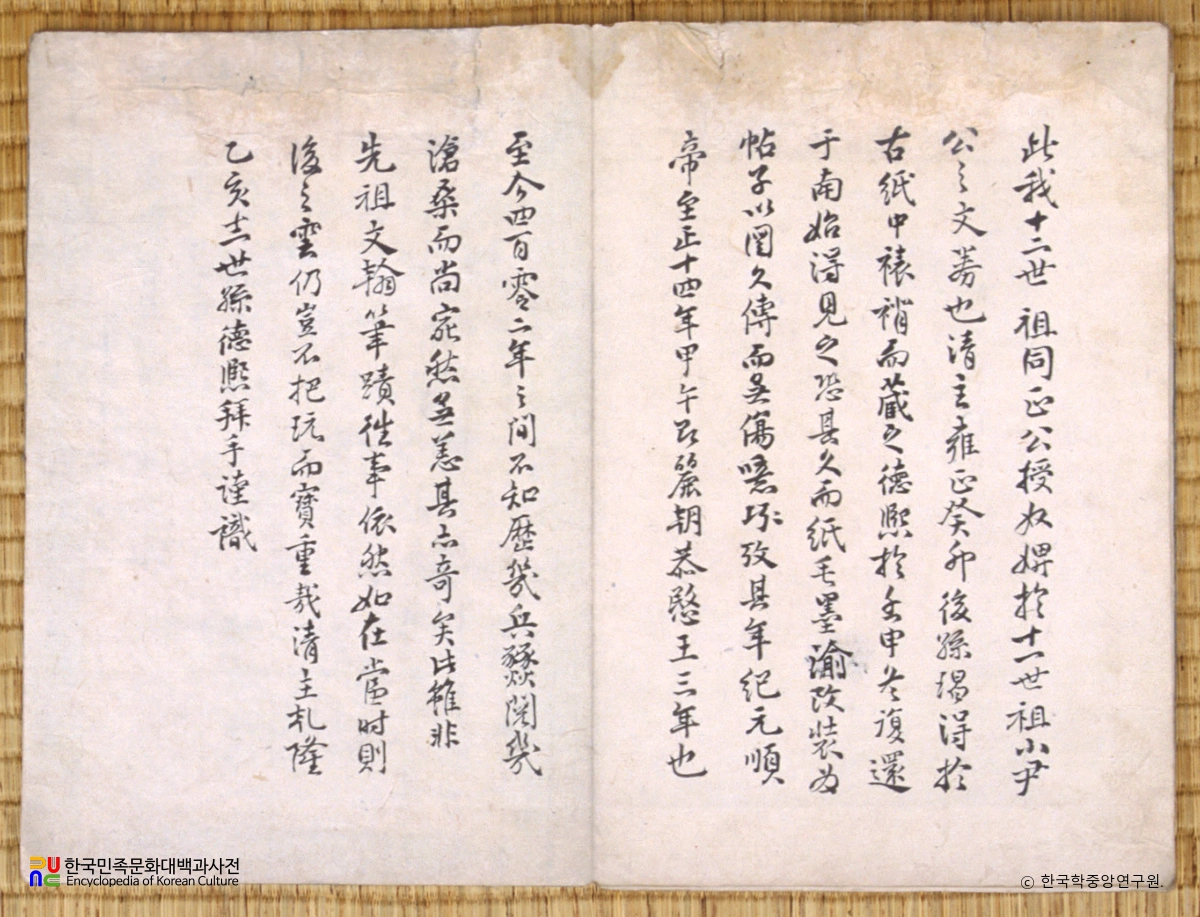 此我十二世 祖同正公授奴婢於十一世祖小尹
公之文券也清主雍正癸卯後孫得於
古紙中褙而藏之德熙於壬申冬復還
于南始得見之恐其久而紙毛墨渝改裝爲
帖子以圖久傳而無傷噫攷其年紀元順
帝至正十四年甲午即麗朝恭愍王三年也
至今四百零二年之間不知歷幾兵燹閱幾
滄桑而尚宛然無恙其亦奇矣此雖非
先祖文翰筆蹟徃事依然如在當时則
後之雲仍豈不把玩而寶重哉清主乹隆
乙亥十二世孫德熙拜手謹識
한국민족문화대백과사전
Encyclopedia of Korean Culture
ⓒ 한국학중앙연구원.